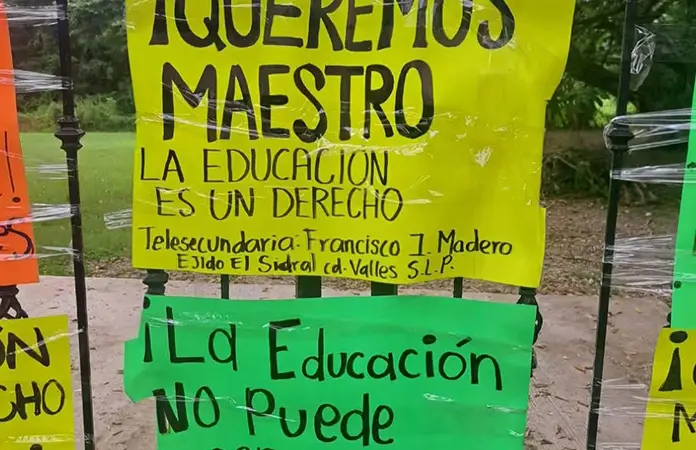 ¡QUEREMOS
MAESTRO
LA EDUCACION
ES UN DERECHO
Telesecundaria: Francisco I. Madero
Ejido El Sidral cd. Valles S.L.P.
¡La Educación
NO Puede
ÓN
CHO